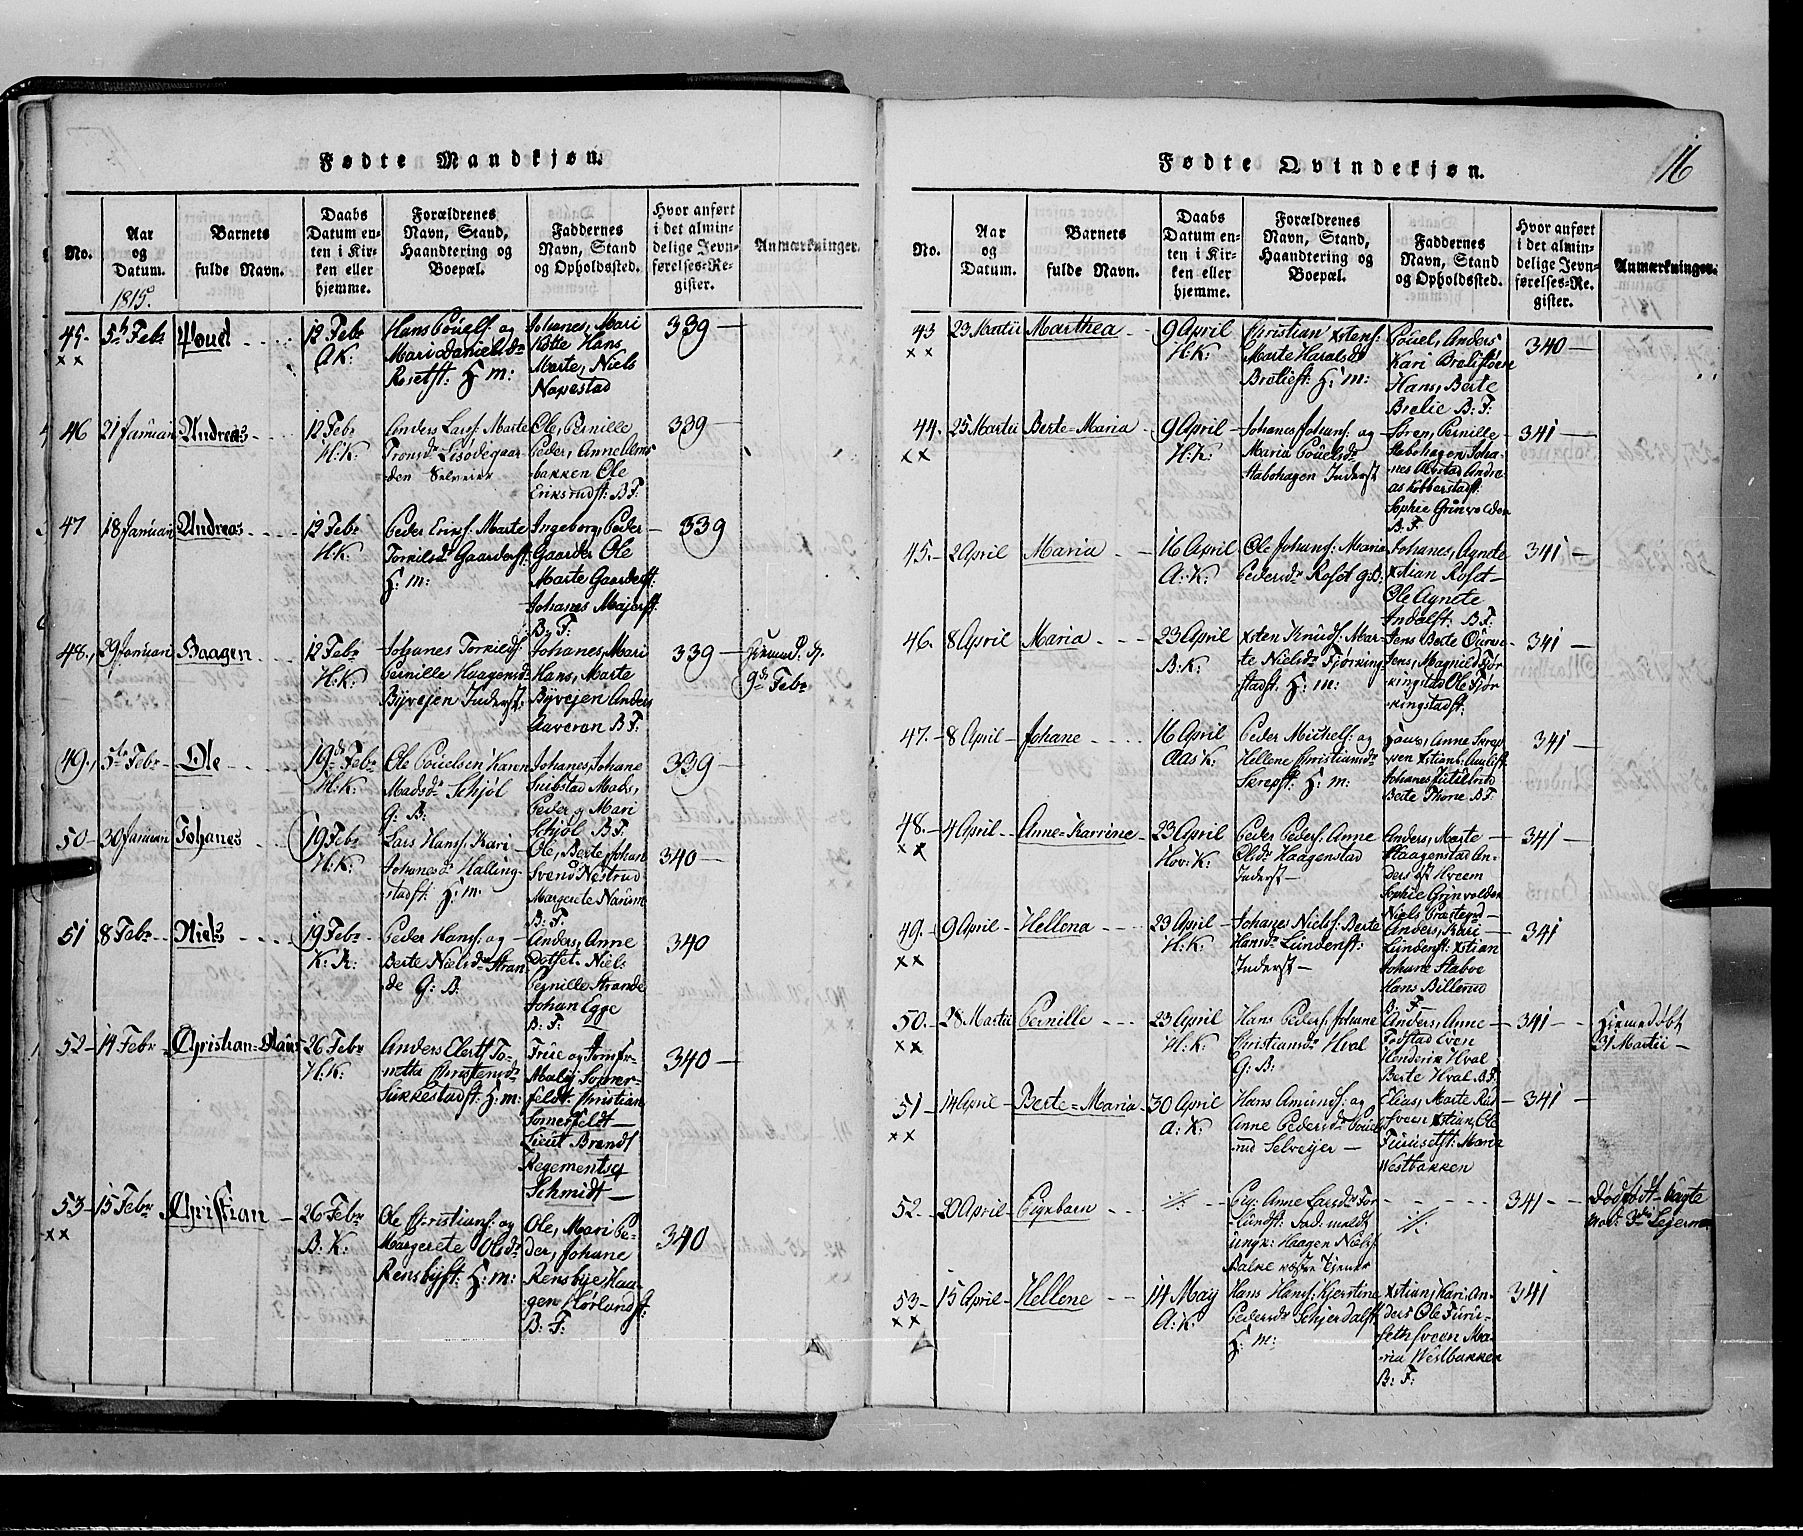 Fødte Mandkjøn.
No.
Aar
og
Datum.
1815
Barnets
fulde Navn.
Daabs
Datum en-
ten i Kir-
ken eller
hjemme.
Forældrenes
Navn, Stand,
Haandtering og
Boepæl.
Faddernes
Navn, Stand
og Opholdssted.
Hvor anført
i det almin-
delige Jevn-
førelses-Re-
gister.
Anmærkninger.
45.
x x
5te Febr
Pouel
12 Febr
A K:
Hans Pouels: og
Mari Danielsdr
Rosetst: H: m:
Johanes, Mari
Hans
Marte, Niels
339
46
21 Januari
Andreas
12 Febr
H: K:
Anders Lars: Marte
den Selveier
Ole, Pernille
Peder, Anne
bakken Ole
Eriksrudst: B F:
339
47
18 Januari
Andreas
12 Febr
H: K:
Peder Erics: Marte
Torkilsdr Gaarderst:
H: m:
Ingeborg, Peder
Gaarder Ole
Marte Gaarderst:
Johanes Majerst:
B: F:
339
48.
29 Januari
Haagen
12 Febr
H: K:
Johanes Torkilds:
Pernille Haagensdr
Byvejen Inderst:
Johanes, Mari
Hans, Marte
Byvejen Anders
Aaveran B F:
339
9de Febr
49.
5te Febr
Ole
19de Febr
H: K:
Ole Pouelsen Karen
Madsdr Schjøl
G: B:
Johanes, Johane
Mads,
Peder og Mari
Schjøl B F:
339
50
30 Januari
Johanes
19 Febr
H: K:
Lars Hans: Kari
Johanesdr Halling-
stadst: H: m:
Ole, Berte, Johan
Svend Nestrud
Margrete Narum
B: F:
340
51
8 Febr
Niels
19 Febr
K: K:
Peder Hans: og
Berte Nielsdr Stran
de G: B:
Anders, Anne
Dotset Niels
Pernille Strande
Johan Egge
B: F:
340
52
14 Febr
Christian=Claus
26 Febr
H: K:
Anders Elert
Christensdr
Sukkestadst: H: m:
Frue og Jomfr-
Maly Somer-
feldt. Christian
Somerfeldt
Lieut Brandt
Regements
Schmidt
340
53
x x
15 Febr
Christian
26 Febr
B: K:
Ole Christians: og
Margrete Olsdr
Rensbyst: H: m:
Ole, Mari Pe-
der, Johane
Rensbye, Haa-
gen Hørlandst:
B: F:
340
Fødte Qvindekjøn.
16
No.
Aar
og
Datum.
Barnets
fulde Navn.
Daabs
Datum en-
ten i Kir-
ken eller
hjemme.
Forældrenes
Navn, Stand,
Haandtering og
Boepæl.
Faddernes
Navn, Stand
og Opholdssted.
Hvor anført
i det almin-
delige Jevn-
førelses-Re-
gister.
Anmærkninger.
43
x x
23 Martii
Marthea
9 April
H: K:
Christian Xstens:
Marte Haralsdr
Breliest: H: m:
Pouel, Anders
Kari
Hans, Berte
Brelie B: F:
340
44.
x x
25 Martii
Berte=Maria
9 April
H: K:
Johanes Johans: og
Maria Pouelsdr
Stabohagen Inderst
Søren, Pernille
Stabohagen, Joha-
nes Andre
as Kobberstadst:
Sophie Grinvolden
B: F:
341
45.
2 April
Maria
16 April
A: K:
Ole Johans: Maria
Pedersdr Roset G: B:
Johanes, Agnete
Xstian Roset
Ole Agnete
B: F:
341
46.
8 April
Maria
23 April
B: K:
Xsten Knuds: Mar-
te Nielsdr Fjørking
stadst. H: m:
Jens Berte
Jens, Magnild Fjør
kingstad Ole Fjør
kingstadst:
341
47.
8 April
Johane
16 April
Aas K:
Peder Michels: og
Hellene Christiansdr
Skrepst: H: m:
Anne Skrep
pen Xstians:
Johanes
Berte Thone B: F:
341
48.
x x
4 April
Anne=Karrine
23 April
Hov: K:
Peder Peders: Anne
Olsdr Haagenstad
Inderst
Anders, Marte
Haagenstad An-
ders Hveem
Sophie Grinvolden
Niels
341
49.
x x
9 April
Hellena
23 April
H: K:
Johanes Niels: Berte
Hansdr Lundenst:
Inderst
Anders, Kari
Lundenst: Xstian
Johane Staboe
Hans Billerud
B: F:
341
50.
x x
28 Martii
Pernille
23 April
H: K:
Hans Peders: Johane
Christiansdr Hval
G: B:
Anders, Anne
Fodstad Even
Henderik Hval
Berte Hval B: F:
341
Hiemedøbt
31 Martii
51
x x
14 April
Berte=Maria
30 April
A: K:
Hans Amunds: og
Anne Pedersdr Pouels
rud Selvejer
Elias, Marte Rød
sveen Xstian, Ole
Furusetst: Marie
Westbakken
341
52.
20 April
Pigebarn
Pig: Anne Larsdr
Lundst: Fad: meldt
ungk: Haagen Niels:
Balke Tjener
341
Dødfødt
53
x x
15 April
Hellene
14 May
A: K:
Hans Hans: Kjerstine
Pedersdr Schjerdalst
H: m:
Xstian, Kari, An-
ders Ole Furu-
seth sveen Ma-
ria Westbakken
B: F:
341